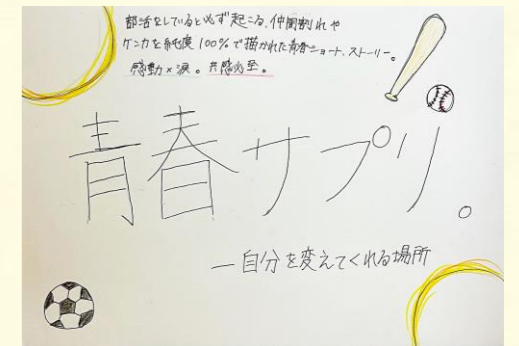 部活をしていると必ず起こる、仲間割れや
ケンカを純度100%で描かれた青春ショート、ストーリー。
感動×涙。共感必至。
青春サプリ。
—自分を変えてくれる場所